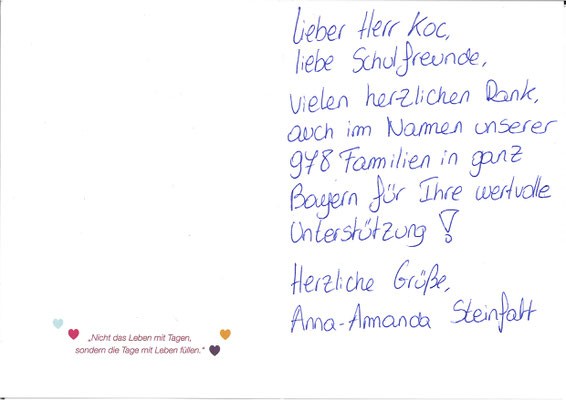 „Nicht das Leben mit Tagen,
sondern die Tage mit Leben füllen.“
Lieber Herr Koc,
liebe Schulfreunde,
vielen herzlichen Dank,
auch im Namen unserer
978 Familien in ganz
Bayern für Ihre wertvolle
Unterstützung!
Herzliche Grüße,
Anna-Amanda Steinfatt